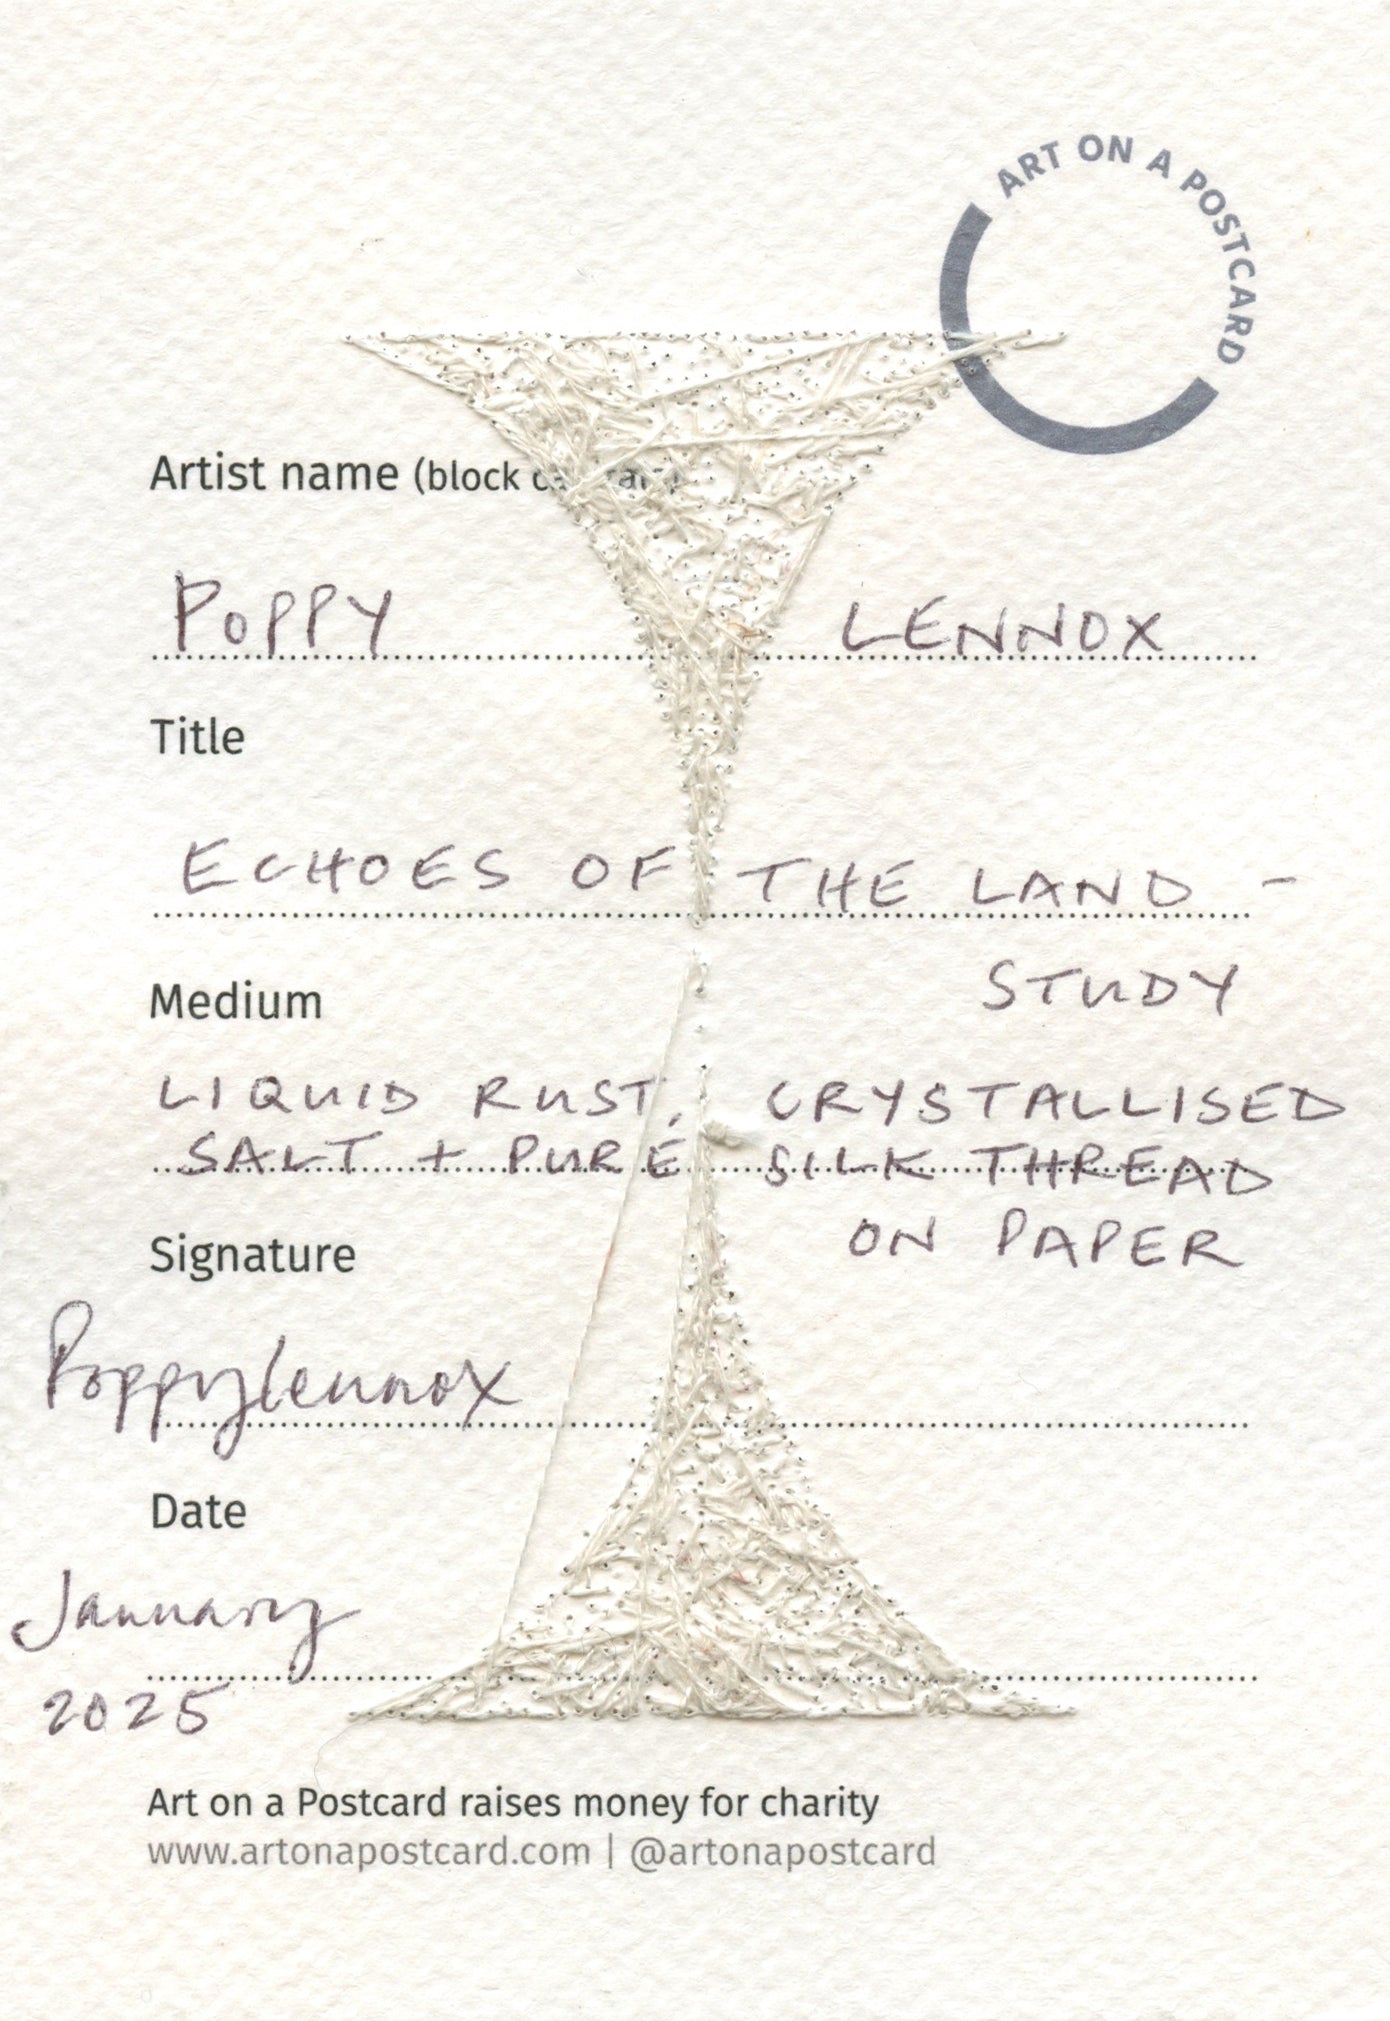 ART ON A POSTCARD
Artist name (block
POPPY LENNOX
Title
ECHOES OF THE LAND -
STUDY
Medium
LIQUID RUST, CRYSTALLISED
SALT + PURE SILK THREAD
ON PAPER
Signature
Poppylennox
Date
January
2025
Art on a Postcard raises money for charity
www.artonapostcard.com | @artonapostcard